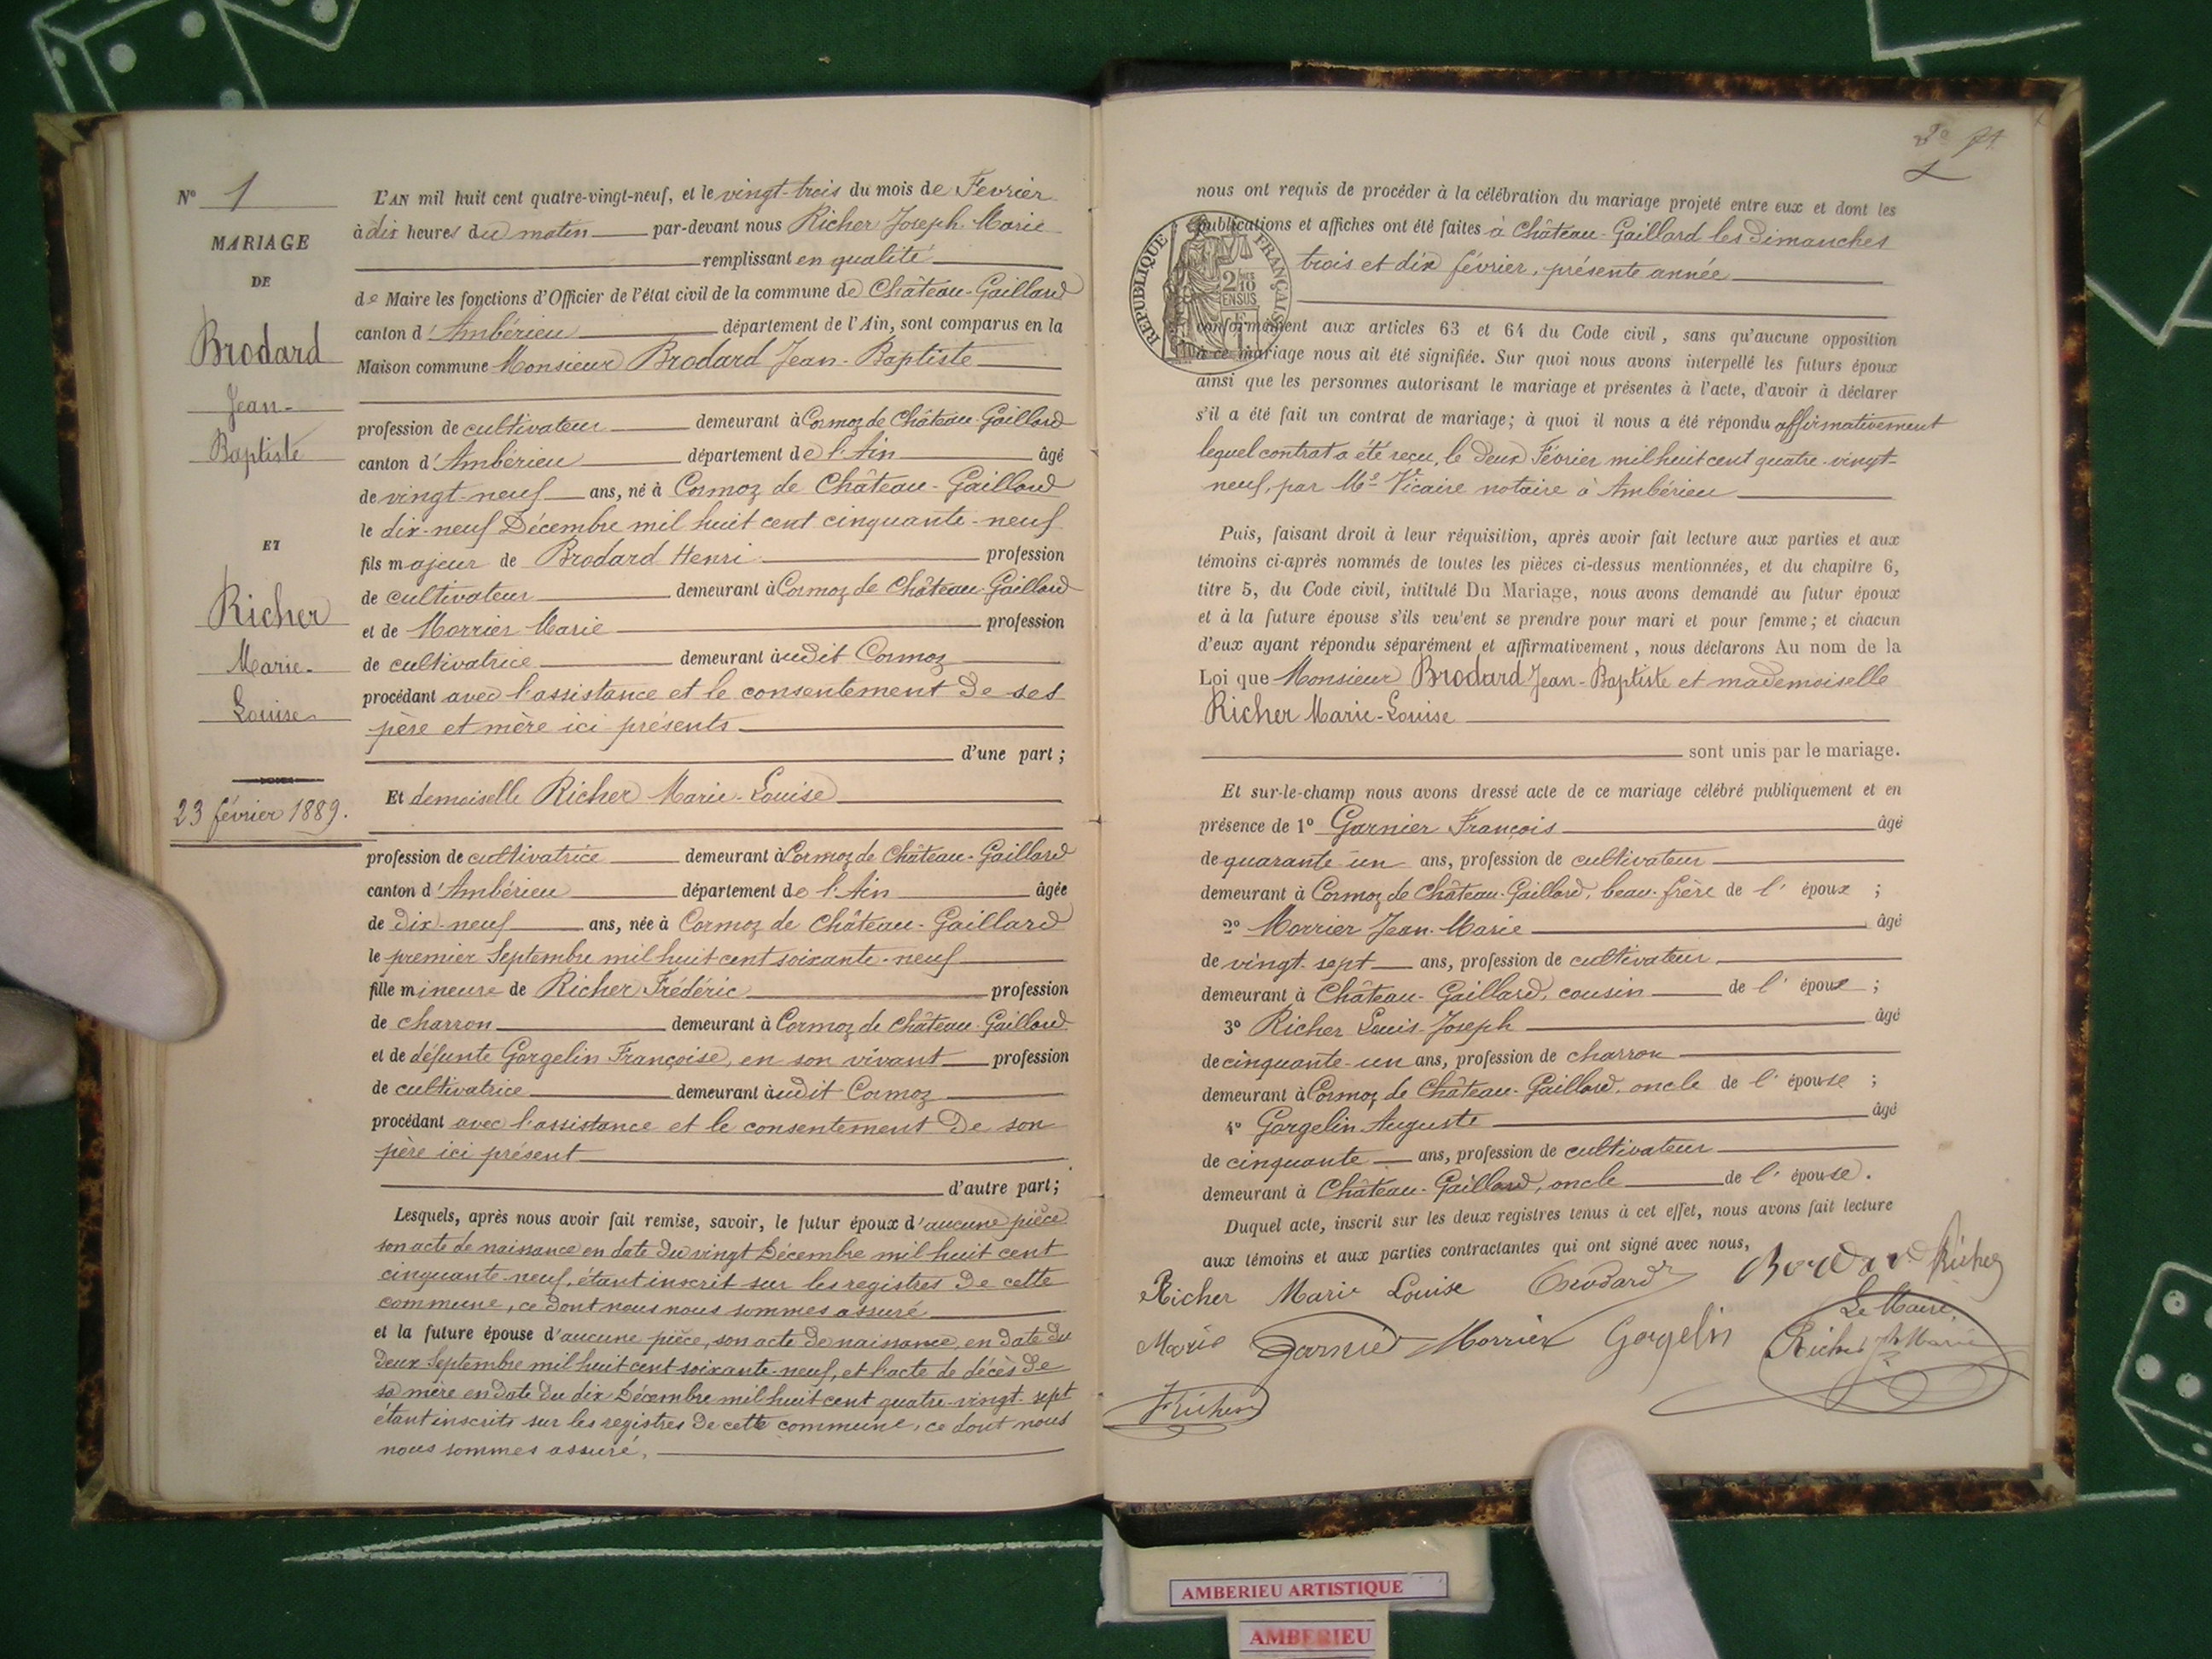 N° 1
MARIAGE
DE
Brodard
Jean-
Baptiste
ET
Richer
Marie-
Louise
23 février 1889.
L'AN mil huit cent quatre-vingt-neuf, et le vingt-trois du mois de Fevrier
à dix heures du matin par-devant nous Richer Joseph Marie
remplissant en qualité
de Maire les fonctions d'Officier de l'état civil de la commune de Château-Gaillard
canton d'Ambérieu département de l'Ain, sont comparus en la
Maison commune Monsieur Brodard Jean-Baptiste
profession de cultivateur demeurant à Cormoz de Château-Gaillard
canton d'Ambérieu département de l'Ain âgé
de vingt-neuf ans, né à Cormoz de Château-Gaillard
le dix-neuf Décembre mil huit cent cinquante-neuf
fils majeur de Brodard Henri profession
de cultivateur demeurant à Cormoz de Château-Gaillard
et de Morrier Marie profession
de cultivatrice demeurant audit Cormoz
procédant avec l'assistance et le consentement de ses
père et mère ici présents
d'une part ;
Et demoiselle Richer Marie-Louise
profession de cultivatrice demeurant à Cormoz de Château-Gaillard
canton d'Ambérieu département de l'Ain âgée
de dix-neuf ans, née à Cormoz de Château-Gaillard
le premier Septembre mil huit cent soixante-neuf
fille mineure de Richer Frédéric profession
de charron demeurant à Cormoz de Château-Gaillard
et de défunte Gorgelin Françoise, en son vivant profession
de cultivatrice demeurant audit Cormoz
procédant avec l'assistance et le consentement de son
père ici présent
d'autre part ;
Lesquels, après nous avoir fait remise, savoir, le futur époux d'aucune pièce
son acte de naissance en date du vingt Décembre mil huit cent
cinquante-neuf, étant inscrit sur les registres de cette
commune, ce dont nous nous sommes assuré
et la future épouse d'aucune pièce, son acte de naissance, en date du
deux Septembre mil huit cent soixante-neuf, et l'acte de décès de
sa mère en date du dix Décembre mil huit cent quatre-vingt-sept
étant inscrits sur les registres de cette commune, ce dont nous
nous sommes assuré.
nous ont requis de procéder à la célébration du mariage projeté entre eux et dont les
publications et affiches ont été faites à Château-Gaillard les dimanches
trois et dix février, présente année
RÉPUBLIQUE FRANÇAISE
2/10 EN SUS
conformément aux articles 63 et 64 du Code civil, sans qu'aucune opposition
à ce mariage nous ait été signifiée. Sur quoi nous avons interpellé les futurs époux
ainsi que les personnes autorisant le mariage et présentes à l'acte, d'avoir à déclarer
s'il a été fait un contrat de mariage ; à quoi il nous a été répondu affirmativement
lequel contrat a été reçu, le deux Février mil huit cent quatre-vingt-
neuf, par Me Vicaire notaire à Ambérieu
Puis, faisant droit à leur réquisition, après avoir fait lecture aux parties et aux
témoins ci-après nommés de toutes les pièces ci-dessus mentionnées, et du chapitre 6,
titre 5, du Code civil, intitulé Du Mariage, nous avons demandé au futur époux
et à la future épouse s'ils veu'ent se prendre pour mari et pour femme ; et chacun
d'eux ayant répondu séparément et affirmativement, nous déclarons Au nom de la
Loi que Monsieur Brodard Jean-Baptiste et mademoiselle
Richer Marie-Louise
sont unis par le mariage.
Et sur-le-champ nous avons dressé acte de ce mariage célébré publiquement et en
présence de 1° Garnier François âgé
de quarante un ans, profession de cultivateur
demeurant à Cormoz de Château-Gaillard, beau-frère de l'époux ;
2° Morrier Jean-Marie âgé
de vingt-sept ans, profession de cultivateur
demeurant à Château-Gaillard, cousin de l'époux ;
3° Richer Louis-Joseph âgé
de cinquante-un ans, profession de charron
demeurant à Cormoz de Château-Gaillard, oncle de l'épouse ;
4° Gorgelin Auguste âgé
de cinquante ans, profession de cultivateur
demeurant à Château-Gaillard, oncle de l'épouse.
Duquel acte, inscrit sur les deux registres tenus à cet effet, nous avons fait lecture
aux témoins et aux parties contractantes qui ont signé avec nous,
Richer Marie Louise Brodard Brodard Richer
Le Maire
Marie Garnier Morrier Gorgelin Richer Jh Marie
Richer
AMBERIEU ARTISTIQUE
AMBERIEU